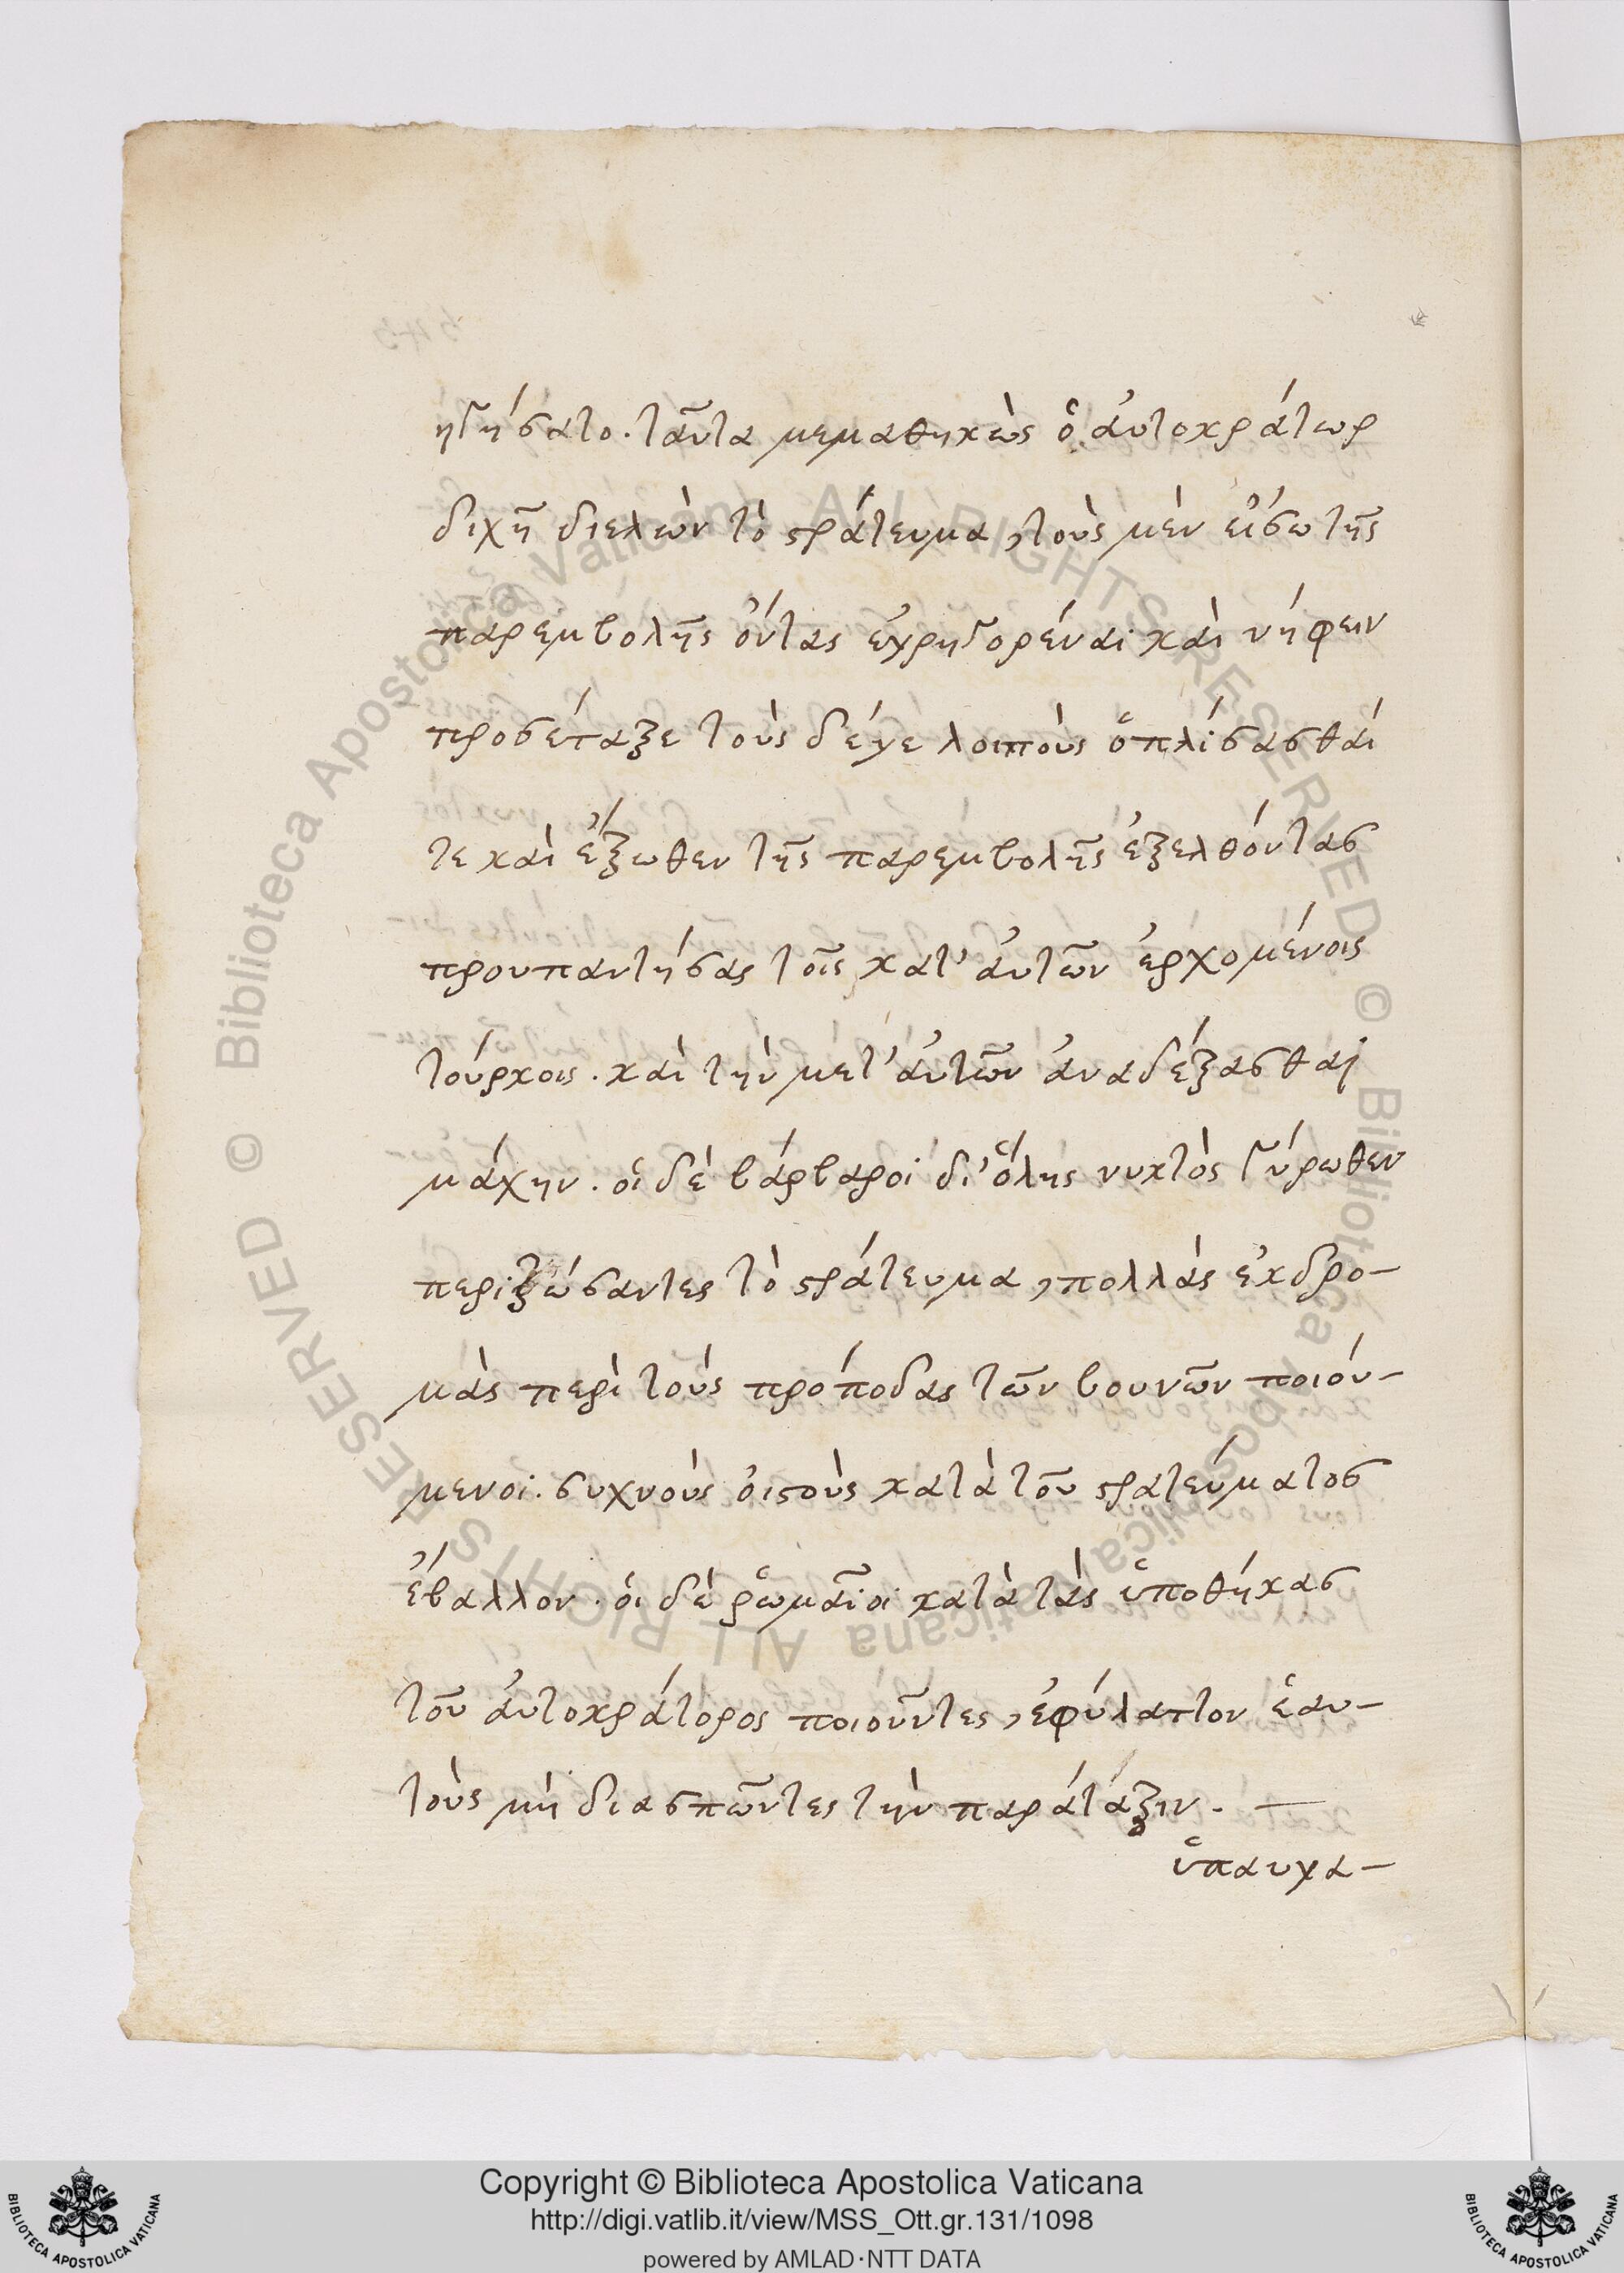 ηγήσατο. ταῦτα μεμαθηκὼς ὁ αὐτοκράτωρ
διχῆ διελὼν τὸ στράτευμα, τοὺς μὲν εἴσω τῆς
παρεμβολῆς ὄντας ἐγρηγορέναι καὶ νήφειν
προσέταξε τοὺς δέγε λοιποὺς ὁπλίσασθάι
τε καὶ ἔξωθεν τῆς παρεμβολῆς ἐξελθόντας
προυπαντήσας τοῖς κατ' αὐτῶν ἐρχομένοις
τούρκοις. καὶ τὴν μετ' αὐτῶν ἀναδέξασθαι
μάχην. οἱ δὲ βάρβαροι δι' ὅλης νυκτὸς γύρωθεν
περιζώσαντες τὸ στράτευμα, πολλὰς ἐκδρο-
μὰς περὶ τοὺς πρόποδας τῶν βουνῶν ποιού-
μενοι. συχνοὺς ὀιστοὺς κατὰ τοῦ στρατεύματος
ἔβαλλον. οἱ δὲ ῥωμαῖοι κατὰ τὰς ὑποθήκας
τοῦ αὐτοκράτορος ποιοῦντες, ἐφύλαττον ἑαυ-
τοὺς μὴ διασπῶντες τὴν παράτάξιν. —
ὑπαυγα-
© Biblioteca Apostolica Vaticana ALL RIGHTS RESERVED © Biblioteca Apostolica Vaticana ALL RIGHTS RESERVED
Copyright © Biblioteca Apostolica Vaticana
http://digi.vatlib.it/view/MSS_Ott.gr.131/1098
powered by AMLAD·NTT DATA
BIBLIOTECA APOSTOLICA VATICANA
BIBLIOTECA APOSTOLICA VATICANA